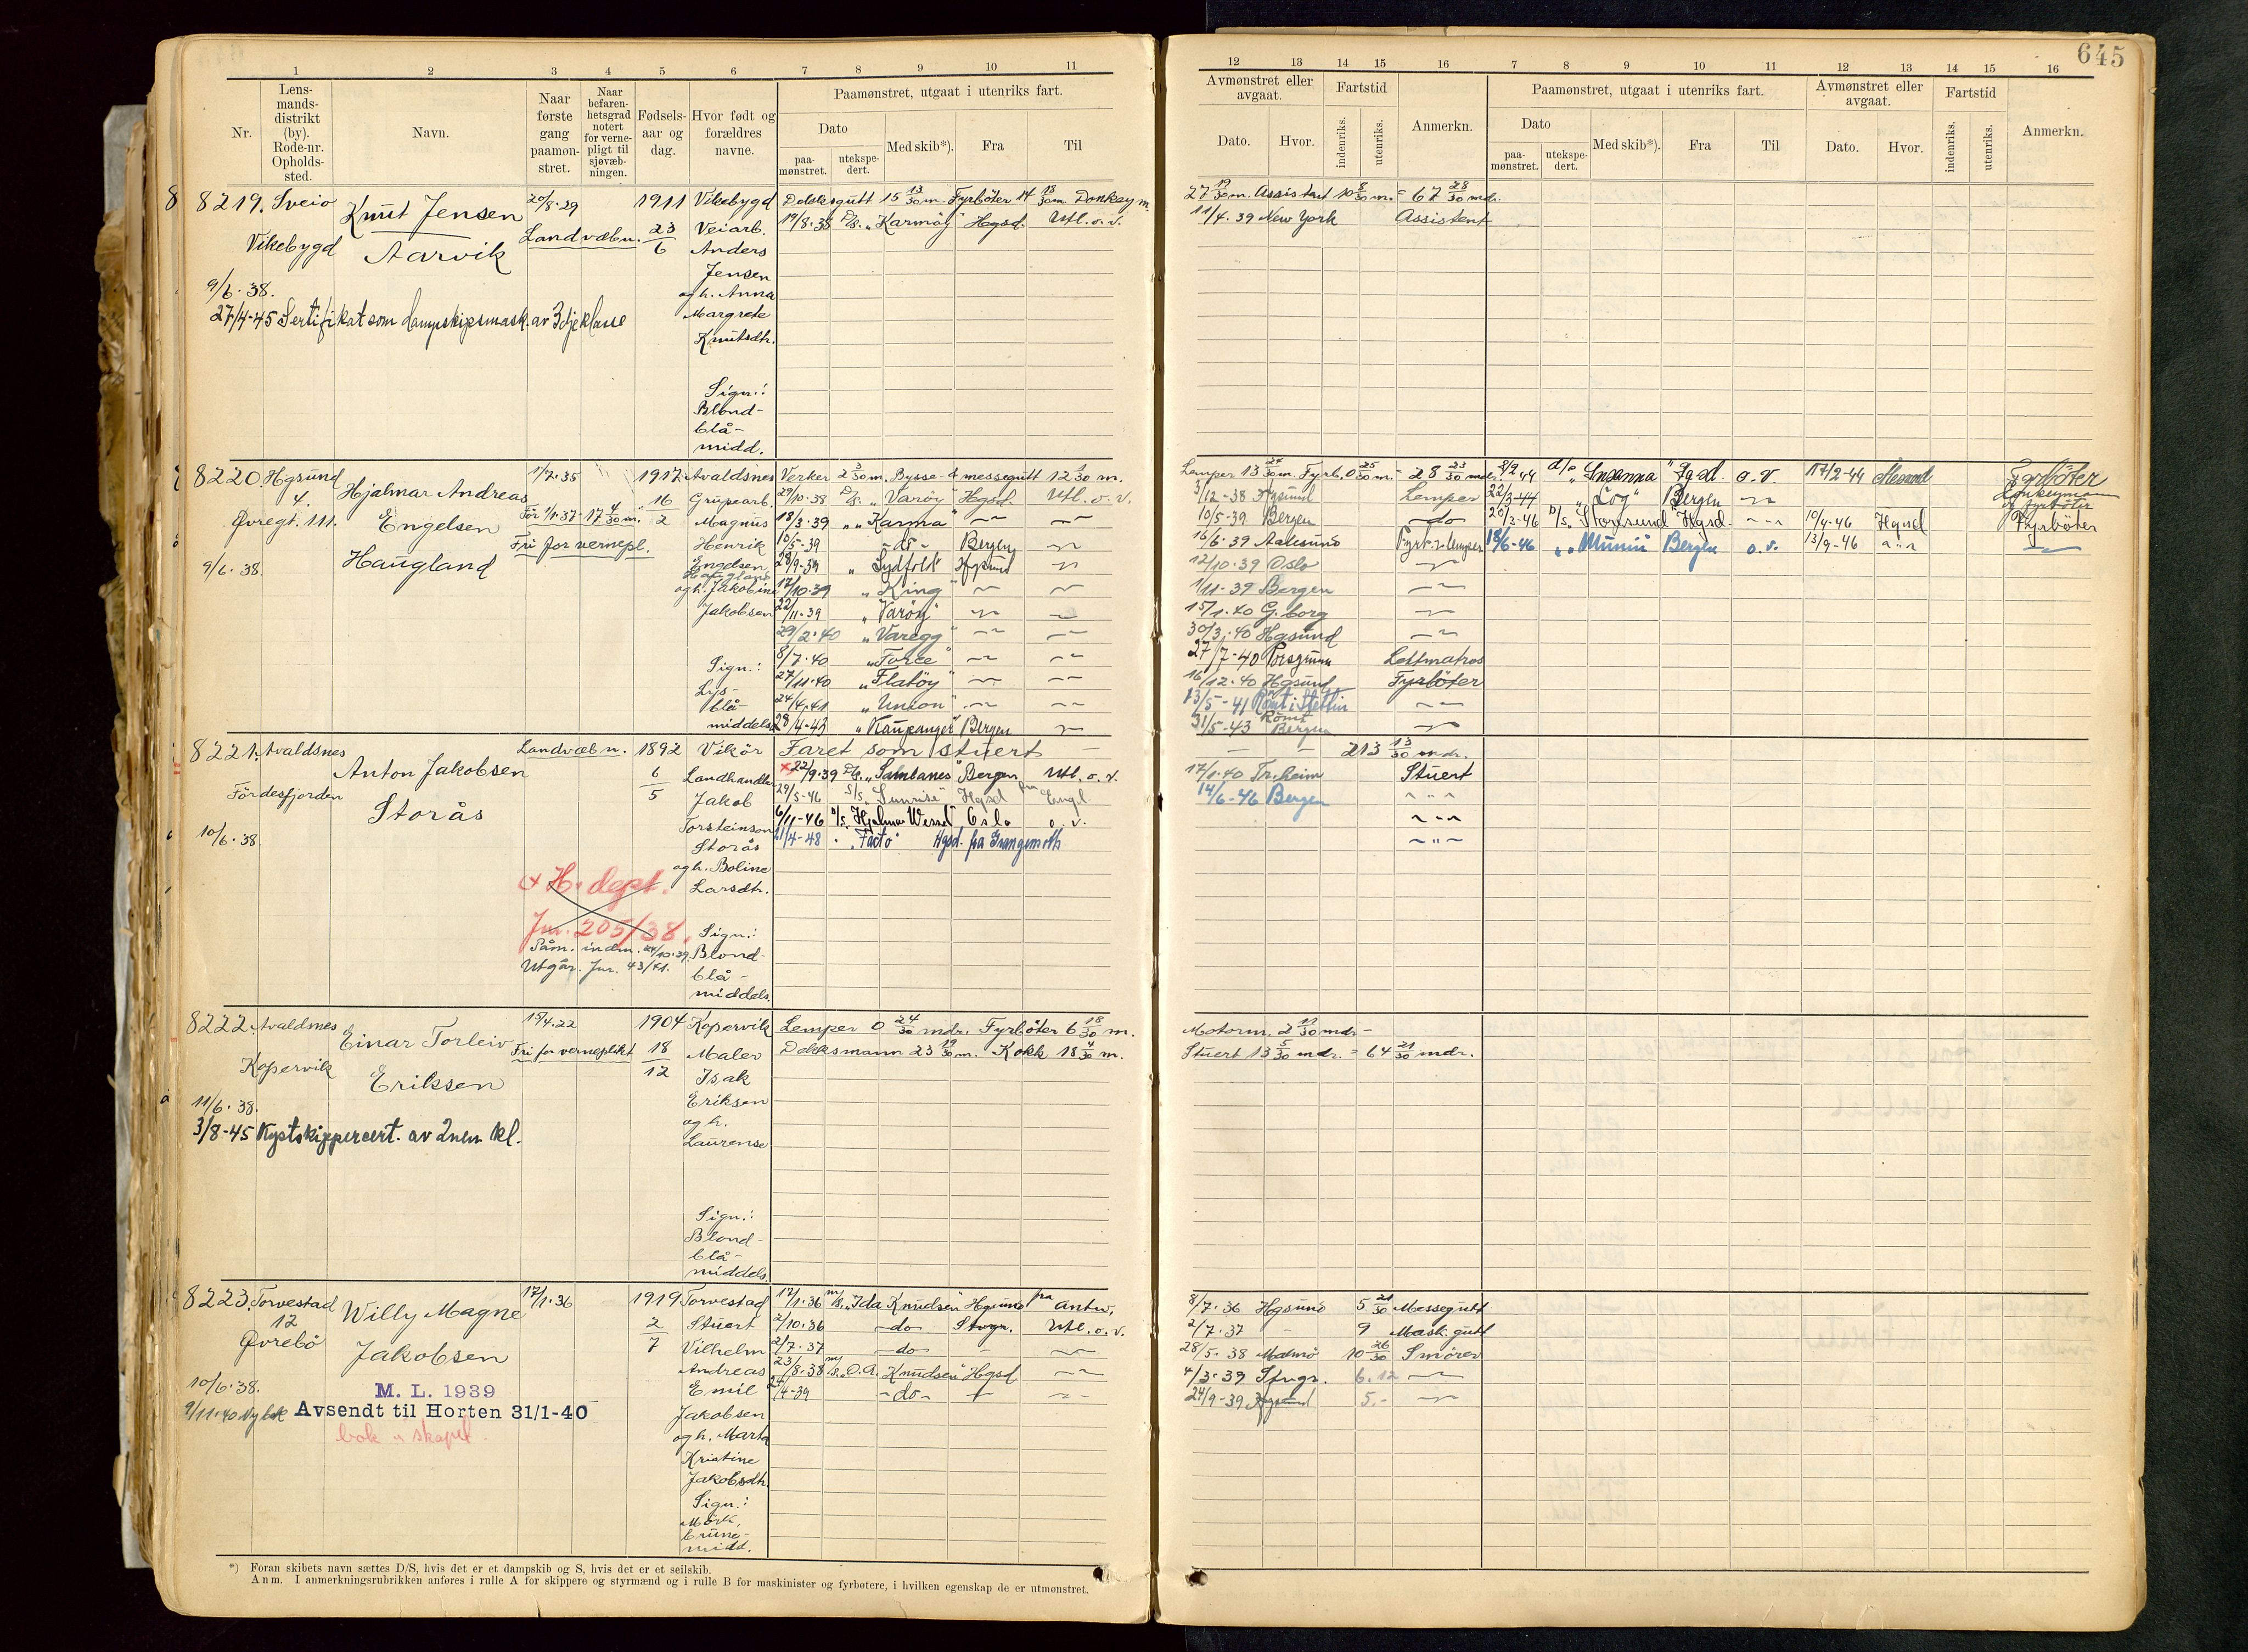 645
1 2 3 4 5 6 7 8 9 10 11
12 13 14 15 16 7 8 9 10 11 12 13 14 15 16
Nr.
Lens-
mands-
distrikt
(by).
Rode-nr.
Opholds-
sted.
Navn.
Naar
første
gang
paamøn-
stret.
Naar
befaren-
hetsgrad
notert
for verne-
pligt til
sjøvæb-
ningen.
Fødsels-
aar og
dag.
Hvor født og
forældres
navne.
Paamønstret, utgaat i utenriks fart.
Dato
paa-
mønstret.
utekspe-
dert.
Med skib*).
Fra
Til
Avmønstret eller
avgaat.
Dato.
Hvor.
Fartstid
indenriks.
utenriks.
Anmerkn.
Paamønstret, utgaat i utenriks fart.
Dato
paa-
mønstret.
utekspe-
dert.
Med skib*).
Fra
Til
Avmønstret eller
avgaat.
Dato.
Hvor.
Fartstid
indenriks.
utenriks.
Anmerkn.
8219. Sveio
Vikebygd
9/6.38.
27/4-45 Sertifikat som dampskipsmask. av 3dje klasse
Knut Jensen
Aarvik
20/8.29
Landvæbn.
1911
23
6
Vikebygd
Veiarb.
Anders
Jensen
og h. Anna
Margrete
Knutsdtr.
Sign.:
Blond-
blå-
midd.
Dekksgutt 15 13/30 m. Fyrböter 14 18/30 m. Donkeym.
19/8.38 D/S. „Karmöy" Hgsd. Utl. o. v.
27 19/30 m. Assistent 10 8/30 m. = 67 28/30 mdr.
11/4.39 New York Assistent
8220. Hgsund
4.
Øvregt. 111.
9/6.38.
Hjalmar Andreas
Engelsen
Haugland
1/7.35
För 1/1.37 17 4/30 m.
Fri for vernepl.
1917.
16
2
Avaldsnes
Grupearb.
Magnus
Henrik
Engelsen
Haugland
og h. Jakobine
Jakobsen
Sign.:
Lys-
blå-
middels
Verker 2 3/30 m. Bysse- & messegutt 12 1/30 m.
29/10.38 D/S. „Varöy" Hgsd. Utl. o. v.
18/3.39 „ „Karma" — —
10/5-39 - do - Bergen —
28/9-39 „Sydfold" Hgsund —
17/10.39 „King" — —
22/11.39 „Varöy" — —
29/2.40 „Varegg" — —
8/7.40 „Force" — —
27/11.40 „Flatöy" — —
24/4.41 „Union" — —
28/4-43 „Kaupanger" Bergen —
Lemper 13 24/30 m. Fyrb. 0 25/30 m. = 28 23/30 mdr.
3/12-38 Hgsund Lemper
10/5-39 Bergen do
16/6.39 Aalesund Fyrb. & lemper
12/10.39 Oslo —
1/11-39 Bergen —
15/1.40 G.borg —
30/3.40 Hgsund —
27/7-40 Porsgrunn Lettmatros
16/12.40 Hgsund Fyrböter
13/5-41 Römt i Stettin —
31/5-43 Römt Bergen —
8/2 44 d/s „Susanna" Hgsd. o. v. 17/2-44 Ålesund Fyrböter
22/3-44 „Log" Bergen — Donkeymann & fyrböter
20/3-46 D/S. „Storesund" Hgsd. — 10/4-46 Hgsd Fyrböter
18/6-46 „ „Munin" Bergen o. v. 13/9-46 —
8221. Avaldsnes
Fördesfjorden
10/6.38.
Anton Jakobsen
Storås
Landvæbn.
1892
6
5
Vikör
Landhandler
Jakob
Torsteinson
Storås
og h. Boline
Larsdtr.
Sign.:
Blond-
blå-
middels.
+ H. dept.
Jnr. 205/38.
Påm. indm. 24/10.39.
Utgår. Jnr. 43/41.
Faret som stuert — — — 213 13/30 mdr.
+22/9.39 D/S. „Salmtanes" Bergen Utl. o. v.
29/5-46 S/S. „Sunrise" Hgsd fra Engl
6/11-46 D/S. „Hjalmar Wessel" Oslo o. v.
21/4-48 „Facto" Hgsd. fra Grangemoth
17/1.40 Tr.heim Stuert
14/6-46 Bergen - " -
- " -
- " -
8222. Avaldsnes
Kopervik
11/6.38.
3/8-45 Kystskippercert. av 2nen kl.
Einar Torleiv
Eriksen
15/4.22
Fri for verneplikt
1904
18
12
Kopervik
Maler
Isak
Eriksen
og h.
Laurense
Sign.:
Blond-
blå-
middels.
Lemper 0 24/30 mdr. Fyrböter 6 18/30 m.
Dekksmann 23 19/30 m. Kokk 18 4/30 m.
Motorm. 2 11/30 mdr -
Stuert 13 5/30 mdr. = 64 21/30 mdr.
8223. Torvestad
12
Øvrebö
10/6.38.
9/11.40 Ny bok
Willy Magne
Jakobsen
M. L. 1939
Avsendt til Horten 31/1-40
bok i skapet.
17/1.36
1919
2
7
Torvestad
Stuert
Vilhelm
Andreas
Emil
Jakobsen
og h. Marta
Kristine
Jakobsdtr.
Sign.:
Mörk,
brune-
midd.
17/1.36 m/s. „Ida Knudsen" Hgsund fra Antw.
2/10.36 - do - Stvgr. Utl. o. v.
2/7.37 - do - - —
23/8.38 m/s. „O. A. Knudsen" Hgsd —
2/4-39 - do - — —
8/7.36 Hgsund 5 21/30 Messegutt
2/7.37 - 9 Mask. gutt
28/5.38 Malmö 10 26/30 Smörer
4/3-39 Stvgr. 6.12 —
24/9-39 Hgsund 5.- —
*) Foran skibets navn sættes D/S, hvis det er et dampskib og S, hvis det er et seilskib.
Anm. I anmerkningsrubrikken anføres i rulle A for skippere og styrmænd og i rulle B for maskinister og fyrbøtere, i hvilken egenskap de er utmønstret.